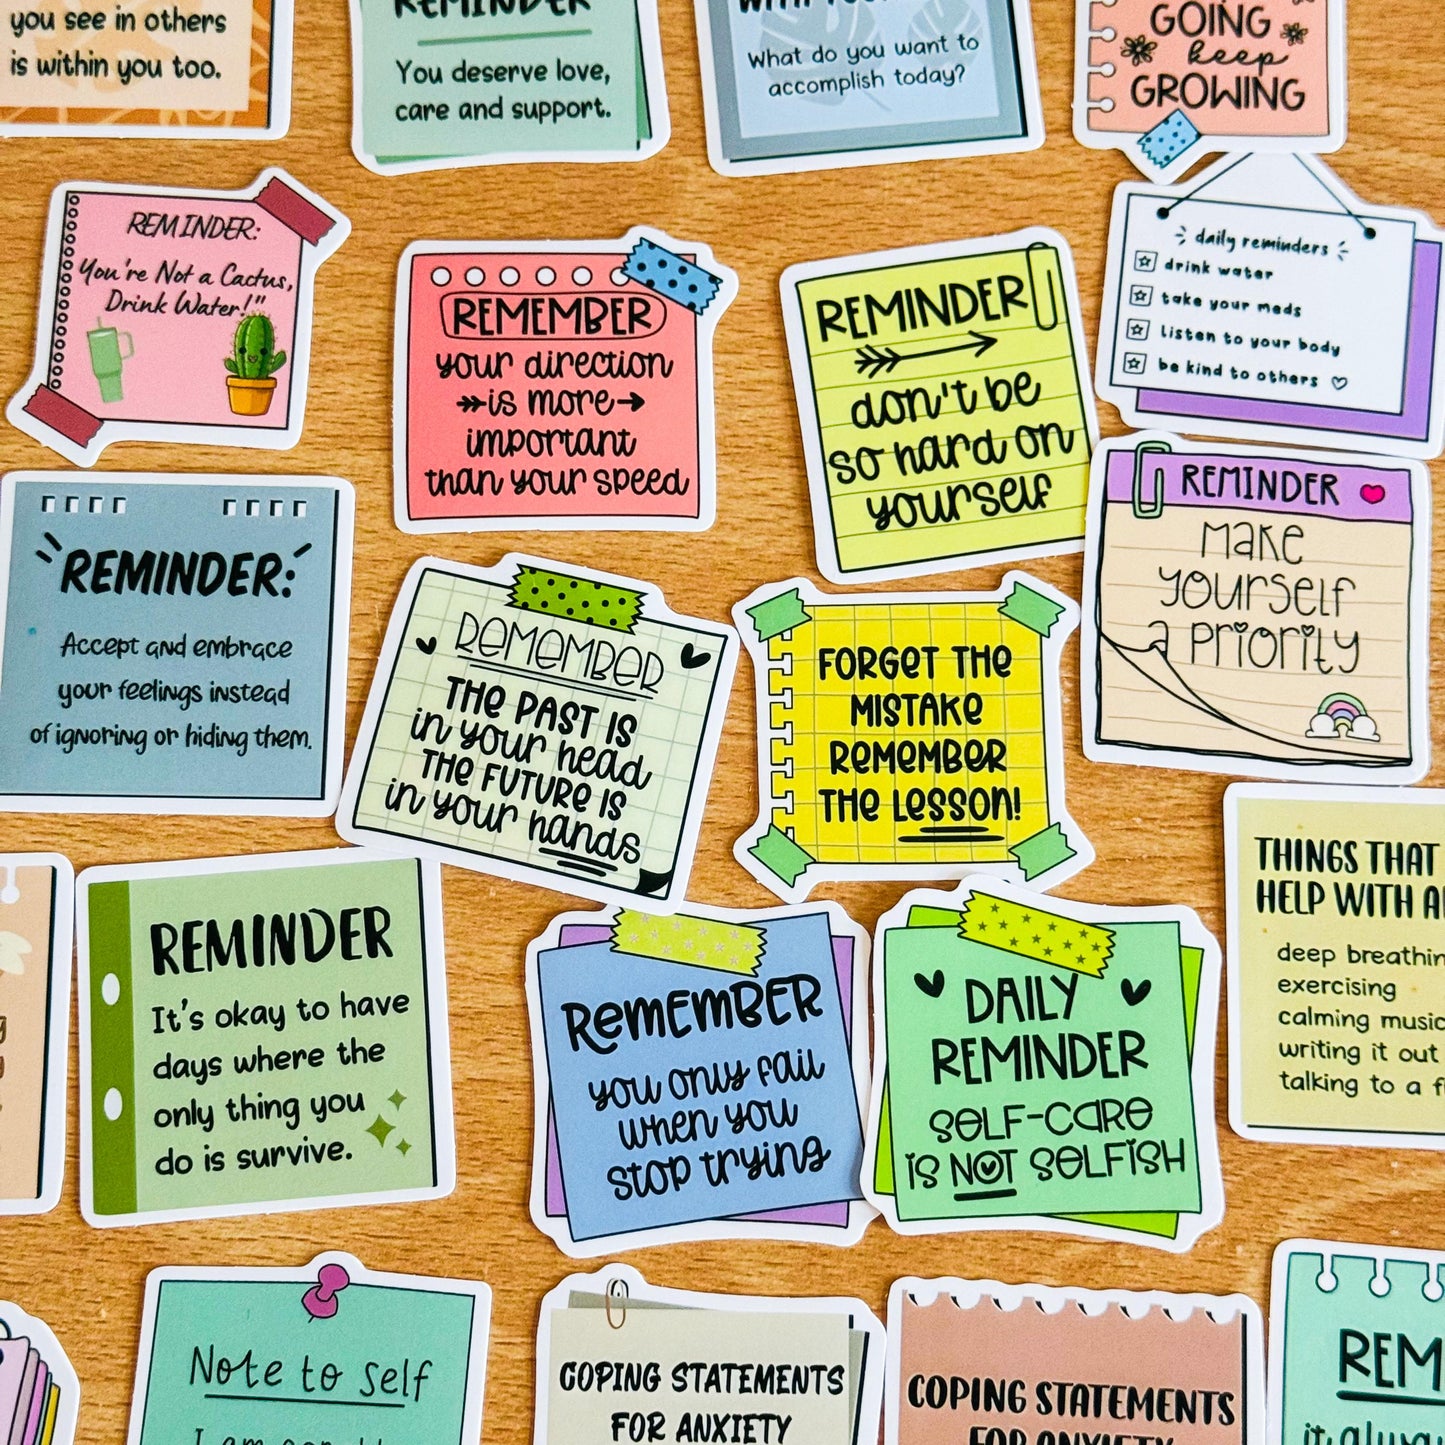 you see in others
is within you too.
REMINDER
You deserve love,
care and support.
What do you want to
accomplish today?
GOING
keep
GROWING
REMINDER:
You're Not a Cactus,
Drink Water!"
REMEMBER
your direction
is more
important
than your speed
REMINDER
don't be
so hard on
yourself
daily reminders
drink water
take your meds
listen to your body
be kind to others
REMINDER:
Accept and embrace
your feelings instead
of ignoring or hiding them.
REMEMBER
THE PAST IS
in your head
THE FUTURE IS
in your hands
FORGET THE
MISTAKE
REMEMBER
THE LESSON!
REMINDER
Make
yourself
a priority
REMINDER
It's okay to have
days where the
only thing you
do is survive.
REMEMBER
you only fail
when you
stop trying
DAILY
REMINDER
SELF-CARE
IS NOT SELFISH
THINGS THAT
HELP WITH
deep
exercising
calming
writing it out
talking to a
Note to self
I am
COPING STATEMENTS
FOR ANXIETY
COPING STATEMENTS
FOR ANXIETY
REM
it